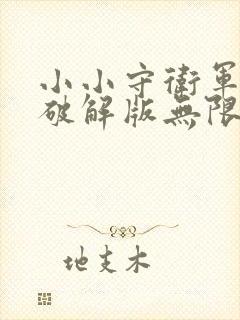 小小守衛軍
破解版無限
地支木